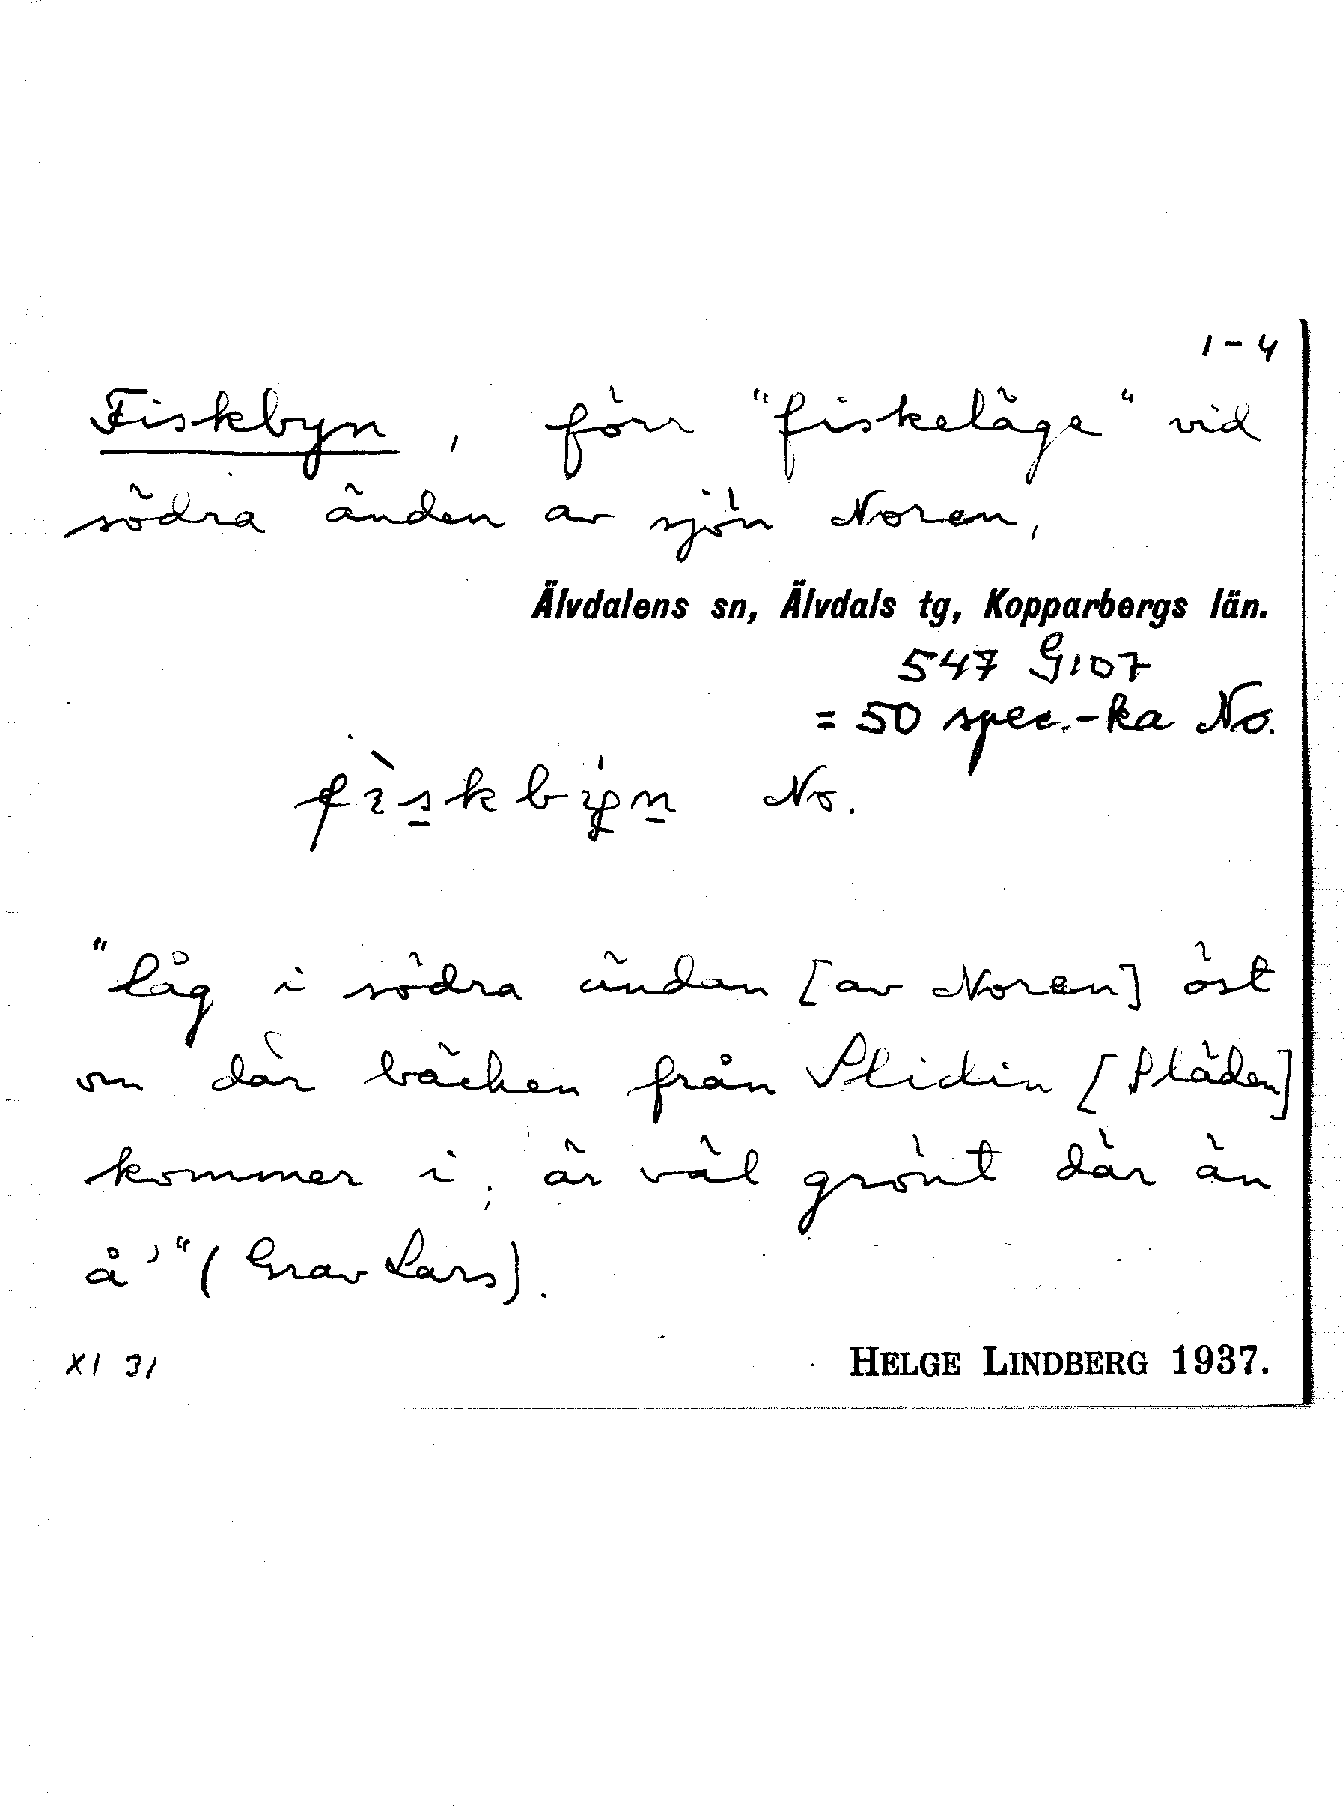 1-4
Fiskbyn, förr "fiskeläge" vid
södra änden av sjön Noren,
Älvdalens sn, Älvdals tg, Kopparbergs län.
547 G107
= 50 spec.-ka No.
fìskbýn No.
"låg i södra ändan [av Noren] öst
om där bäcken från Slidin [Släden]
kommer i; är väl grönt där än
å'" (Grav Lars).
XI 31
HELGE LINDBERG 1937.